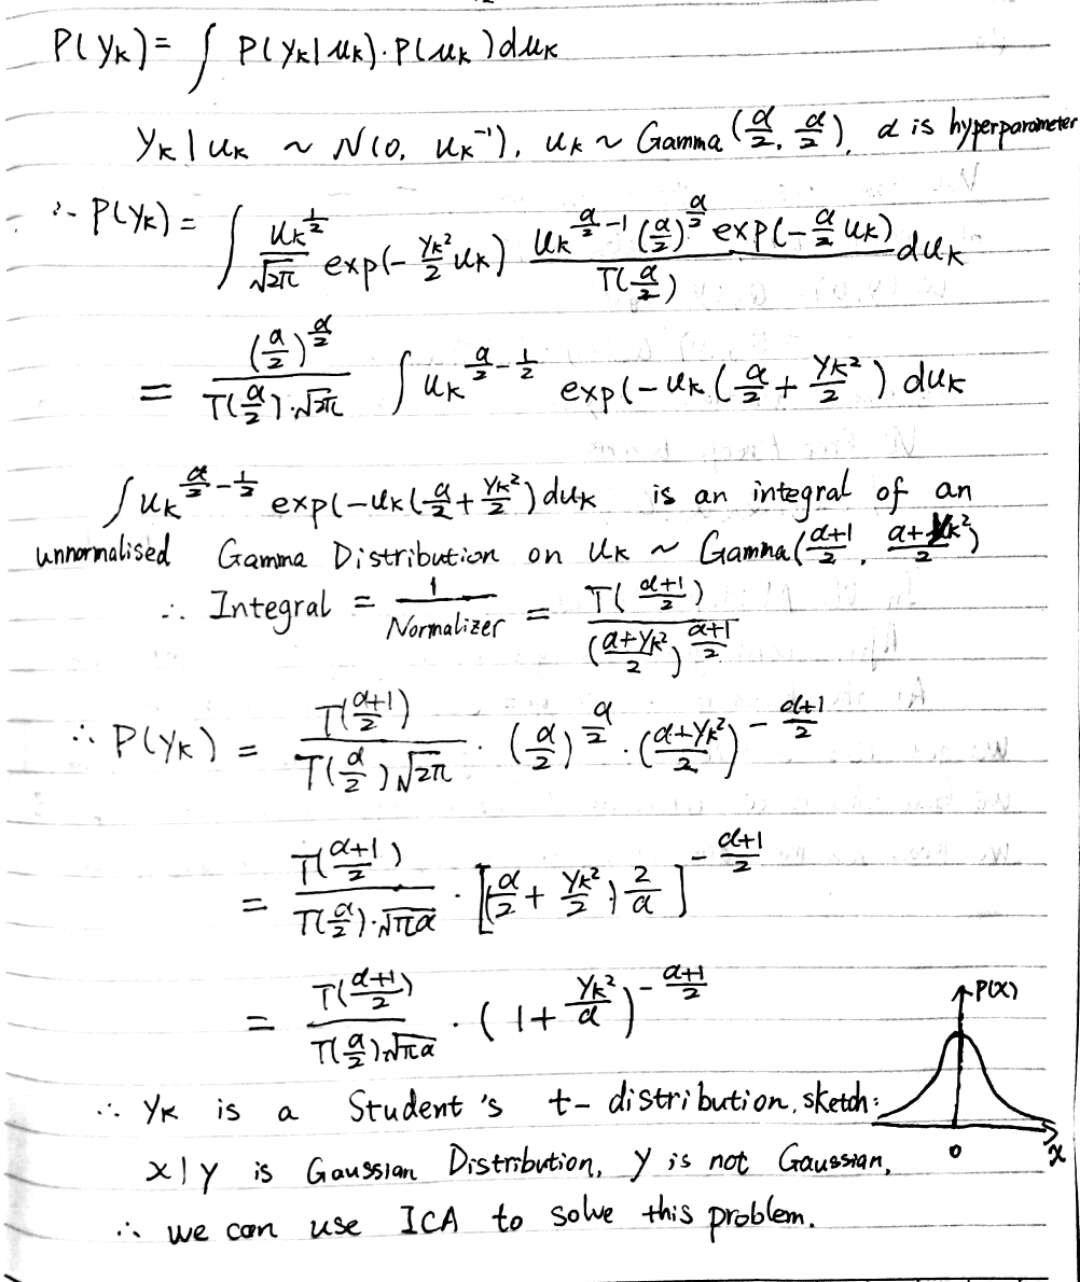 P(yₖ) = ∫ P(yₖ|uₖ)·P(uₖ)duₖ
yₖ|uₖ ~ N(0, uₖ⁻¹), uₖ ~ Gamma(α/2, α/2), α is hyperparameter
∴ P(yₖ) = ∫ uₖ^(1/2)/√2π exp(-yₖ²/2 uₖ) uₖ^(α/2-1) (α/2)^(α/2) exp(-α/2 uₖ)/Γ(α/2) duₖ
= (α/2)^(α/2)/Γ(α/2)·√2π ∫ uₖ^(α/2-1/2) exp(-uₖ(α/2 + yₖ²/2) duₖ
∫ uₖ^(α/2-1/2) exp(-uₖ(α/2 + yₖ²/2) duₖ is an integral of an
unnormalised Gamma Distribution on uₖ ~ Gamma(α+1/2, α+yₖ²/2)
∴ Integral = 1/Normalizer = Γ(α+1/2)/(α+yₖ²/2)^(α+1/2)
∴ P(yₖ) = Γ(α+1/2)/Γ(α/2)√2π · (α/2)^(α/2) · (α+yₖ²/2)^(-α+1/2)
= Γ(α+1/2)/Γ(α/2)·√πα · [(α/2 + yₖ²/2) 2/α]^(-α+1/2)
= Γ(α+1/2)/Γ(α/2)√πα · (1 + yₖ²/α)^(-α+1/2)
∴ yₖ is a Student's t-distribution, sketch:
P(x)
0
x
x|y is Gaussian Distribution, y is not Gaussian,
∴ we can use ICA to solve this problem.